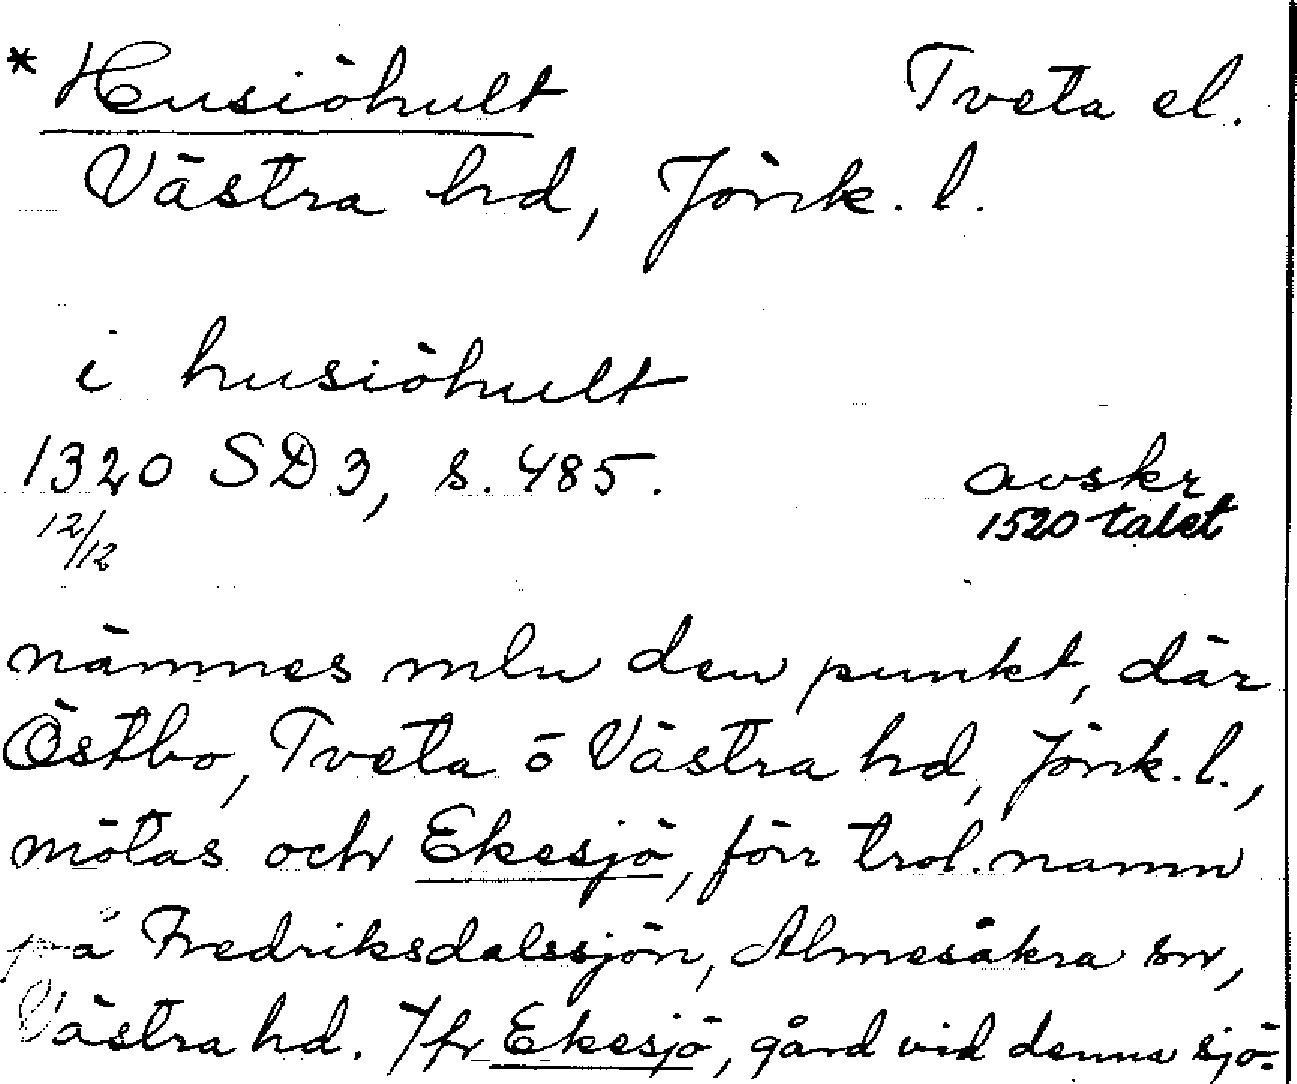 * Husiöhult Tveta el.
Västra hd, Jönk. l.
i husiöhult
1320 SD 3, s. 485. avskr.
12/12 1520 talet
nämnes mln den punkt, där
Östbo, Tveta o Västra hd, Jönk. l.,
mötas och Ekesjö, förr trol. namn
på Fredriksdalssjön, Almesåkra sn,
Västra hd. Jfr Ekesjö, gård vid denna sjö.